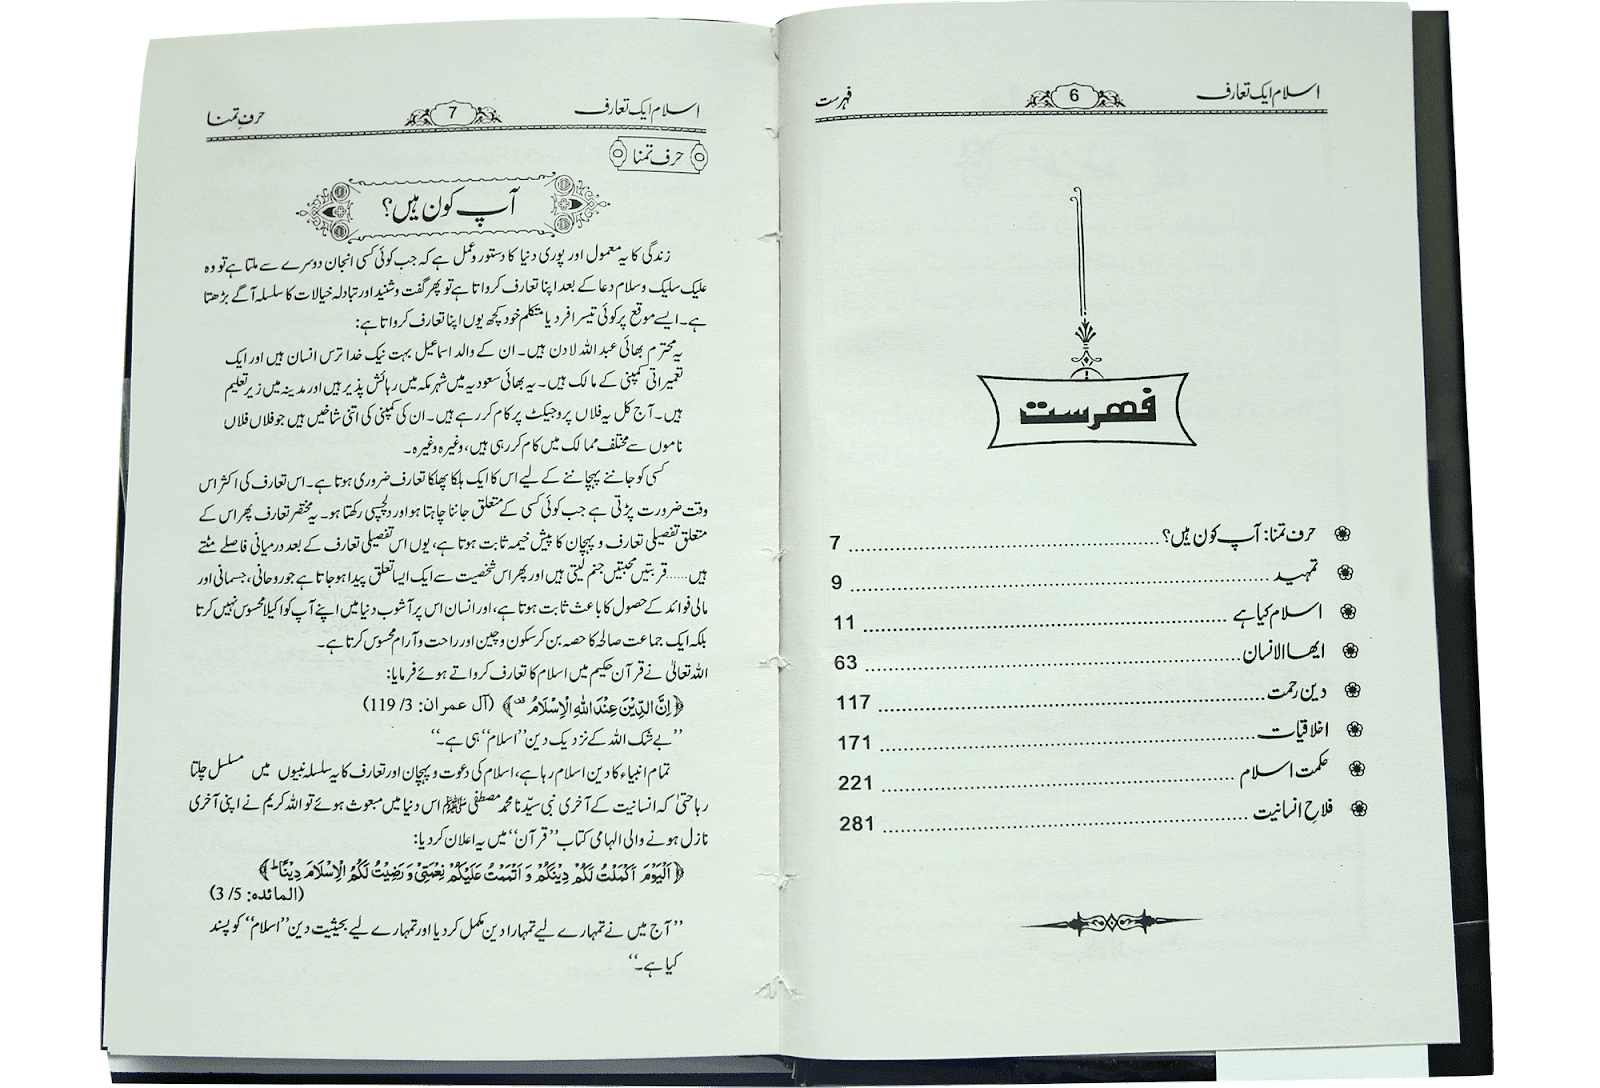 اسلام ایک تعارف
6
فہرست
فہرست
حرف تمنا: آپ کون ہیں؟ 7
تمہید 9
اسلام کیا ہے 11
ایھا الانسان 63
دین رحمت 117
اخلاقیات 171
حکمت اسلام 221
فلاحِ انسانیت 281
اسلام ایک تعارف
7
حرفِ تمنا
حرف تمنا
آپ کون ہیں؟
زندگی کا یہ معمول اور پوری دنیا کا دستور و عمل ہے کہ جب کوئی کسی انجان دوسرے سے ملتا ہے تو وہ
علیک سلیک و سلام دعا کے بعد اپنا تعارف کرواتا ہے تو پھر گفت و شنید اور تبادلہ خیالات کا سلسلہ آگے بڑھتا
ہے۔ ایسے موقع پر کوئی تیسرا فرد یا متکلم خود کچھ یوں اپنا تعارف کرواتا ہے:
یہ محترم بھائی عبد اللہ لادن ہیں۔ ان کے والد اسماعیل بہت نیک خدا ترس انسان ہیں اور ایک
تعمیراتی کمپنی کے مالک ہیں۔ یہ بھائی سعودیہ میں شہر مکہ میں رہائش پذیر ہیں اور مدینہ میں زیر تعلیم
ہیں۔ آج کل یہ فلاں پروجیکٹ پر کام کر رہے ہیں۔ ان کی کمپنی کی اتنی شاخیں ہیں جو فلاں فلاں
ناموں سے مختلف ممالک میں کام کر رہی ہیں، وغیرہ وغیرہ۔
کسی کو جاننے پہچاننے کے لیے اس کا ایک ہلکا پھلکا تعارف ضروری ہوتا ہے۔ اس تعارف کی اکثر اس
وقت ضرورت پڑتی ہے جب کوئی کسی کے متعلق جاننا چاہتا ہو اور دلچسپی رکھتا ہو۔ یہ مختصر تعارف پھر اس کے
متعلق تفصیلی تعارف و پہچان کا پیش خیمہ ثابت ہوتا ہے، یوں اس تفصیلی تعارف کے بعد درمیانی فاصلے مٹتے
ہیں...... قربتیں محبتیں جنم لیتی ہیں اور پھر اس شخصیت سے ایک ایسا تعلق پیدا ہو جاتا ہے جو روحانی، جسمانی اور
مالی فوائد کے حصول کا باعث ثابت ہوتا ہے، اور انسان اس پر آشوب دنیا میں اپنے آپ کو اکیلا محسوس نہیں کرتا
بلکہ ایک جماعت صالحہ کا حصہ بن کر سکون و چین اور راحت و آرام محسوس کرتا ہے۔
اللہ تعالیٰ نے قرآن حکیم میں اسلام کا تعارف کرواتے ہوئے فرمایا:
﴿اِنَّ الدِّیْنَ عِنْدَ اللّٰهِ الْاِسْلَامُ ۫﴾ (آل عمران: 3/ 119)
’’بے شک اللہ کے نزدیک دین ’’اسلام‘‘ ہی ہے۔‘‘
تمام انبیاء کا دین اسلام رہا ہے، اسلام کی دعوت و پہچان اور تعارف کا یہ سلسلہ نبیوں میں مسلسل چلتا
رہا حتیٰ کہ انسانیت کے آخری نبی سیّدنا محمد مصطفی ﷺ اس دنیا میں مبعوث ہوئے تو اللہ کریم نے اپنی آخری
نازل ہونے والی الہامی کتاب ’’قرآن‘‘ میں یہ اعلان کر دیا:
﴿اَلْیَوْمَ اَکْمَلْتُ لَکُمْ دِیْنَکُمْ وَ اَتْمَمْتُ عَلَیْکُمْ نِعْمَتِیْ وَ رَضِیْتُ لَکُمُ الْاِسْلَامَ دِیْنًا ؕ﴾
(المائدہ: 5/ 3)
’’آج میں نے تمہارے لیے تمہارا دین مکمل کر دیا اور تمہارے لیے بحیثیت دین ’’اسلام‘‘ کو پسند
کیا ہے۔‘‘